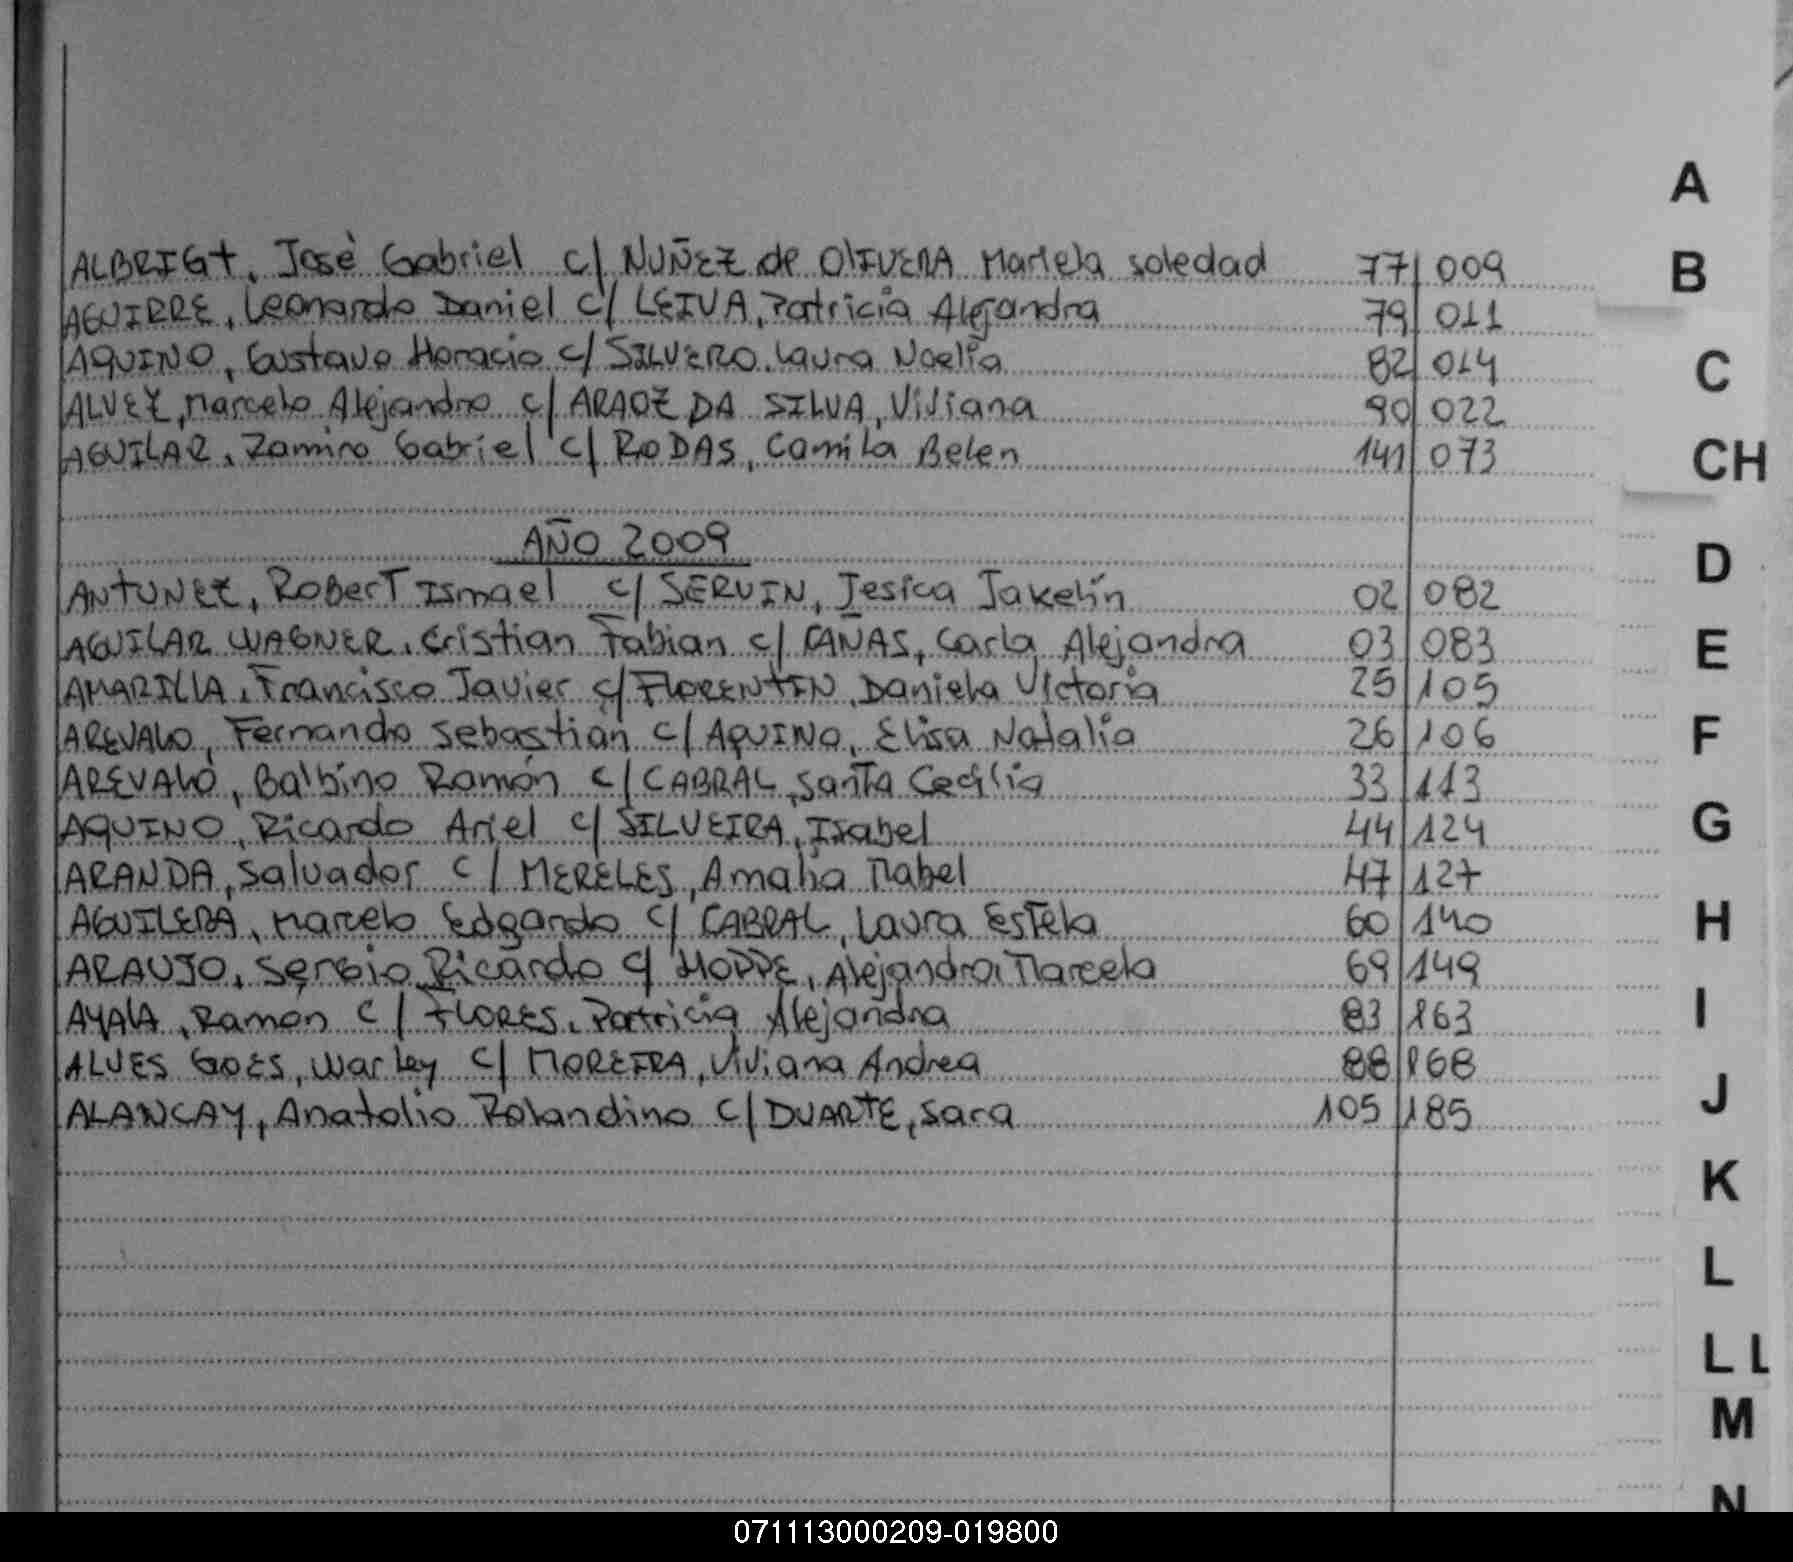 ALBRIGt, José Gabriel c/ NUÑEZ de OlIVERA Mariela soledad 77 009
AGUIRRE, Leonardo Daniel c/ LEIVA, Patricia Alejandra 79 011
AQUINO, Gustavo Horacio c/ SILVERO, Laura Noelia 82 014
ALVEZ, Marcelo Alejandro c/ ARAOZ DA SILVA, Viviana 90 022
AGUILAR, Ramiro Gabriel c/ RODAS, Camila Belen 141 073
AÑO 2009
ANTUNEZ, RoberT Ismael c/ SERVIN, Jesica Jakelin 02 082
AGUILAR WAGNER, Cristian Fabian c/ CAÑAS, Carla Alejandra 03 083
AMARILLA, Francisco Javier c/ FLORENTIN, Daniela Victoria 25 105
AREVALO, Fernando Sebastián c/ AQUINO, Elisa Natalia 26 106
AREVALO, Balbino Ramón c/ CABRAL, Santa Cecilia 33 113
AQUINO, Ricardo Ariel c/ SILVEIRA, Isabel 44 124
ARANDA, Salvador c/ MERELES, Amalia Mabel 47 127
AGUILERA, Marcelo Edgardo c/ CABRAL, Laura Estela 60 140
ARAUJO, Sergio Ricardo c/ HOPPE, Alejandra Marcela 69 149
AYALA, Ramón c/ FLORES, Patricia Alejandra 83 163
ALVES GOES, Warley c/ MOREIRA, Viviana Andrea 88 168
ALANCAY, Anatolio Rolandino c/ DUARTE, Sara 105 185
A
B
C
CH
D
E
F
G
H
I
J
K
L
LL
M
N
071113000209-019800